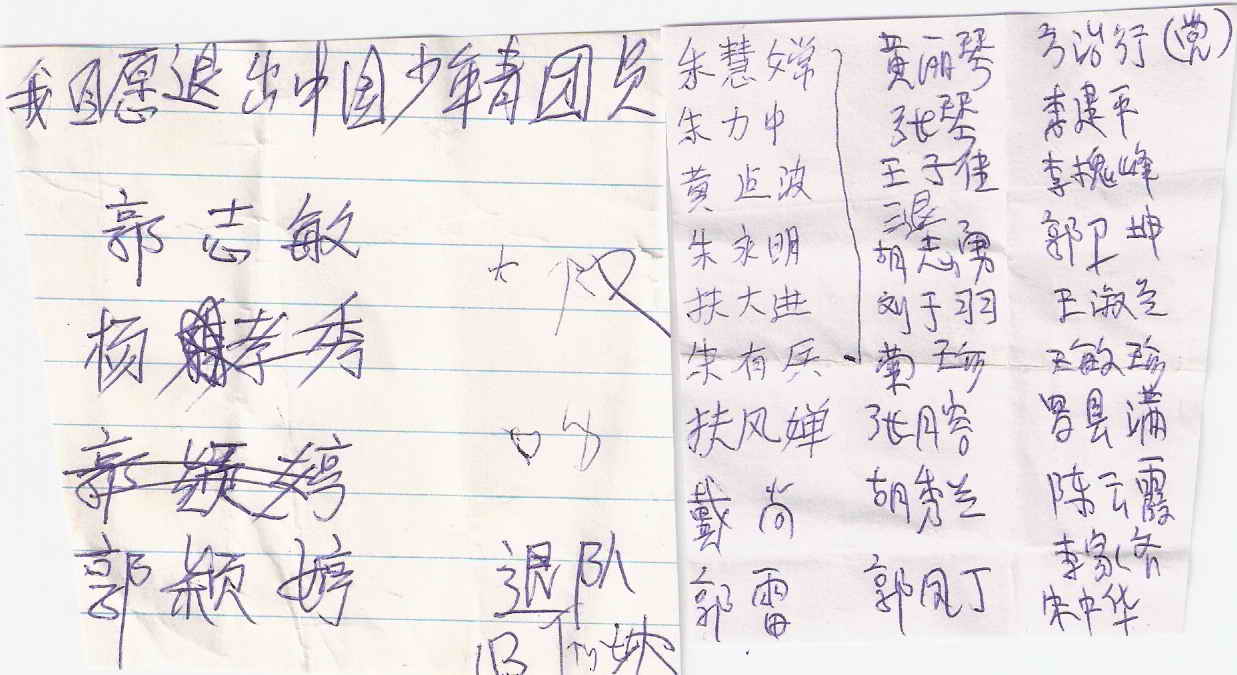 我自愿退出中国少年青团员
郭志敏
杨孝秀
郭颖婷
郭颖婷
退队
朱慧嫦
朱力中
黄
朱永明
扶大进
朱有兵
扶风婵
戴尚
郭雷
黄丽琴
张琴
王子佳
三退
胡志勇
刘于羽
张月容
胡秀兰
郭凤丁
方治行(党)
李建平
李槐峰
郭卫坤
王淑兰
王敏珍
陈云霞
李家
宋中华